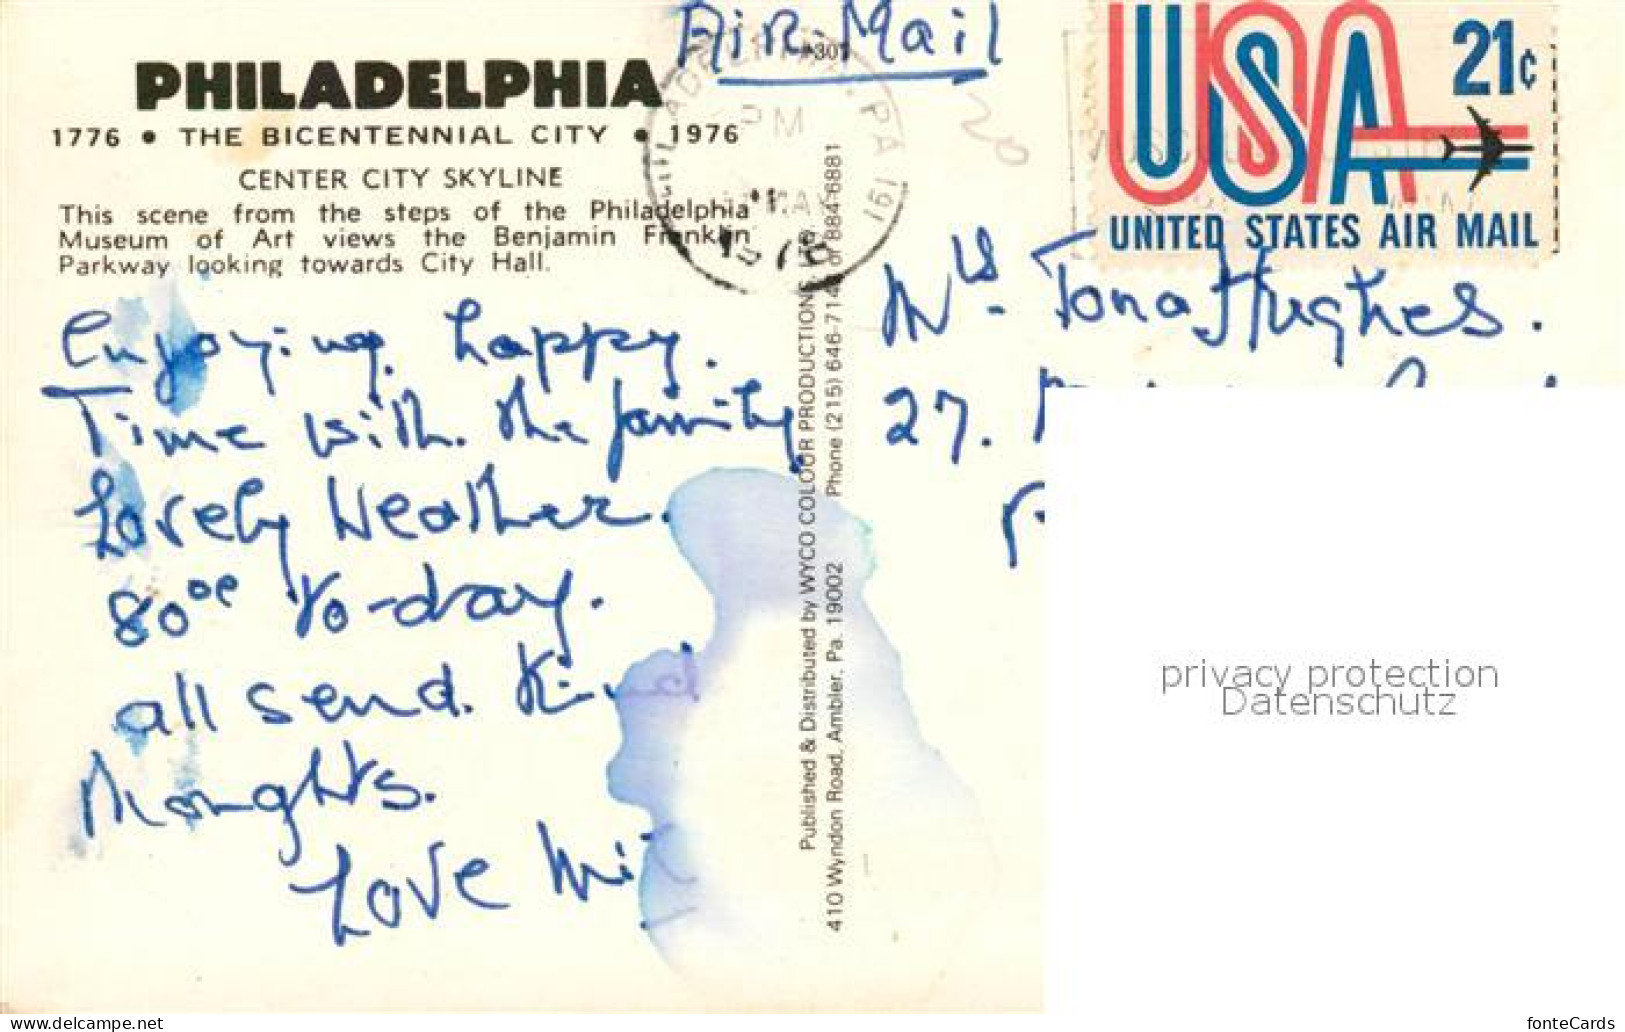 Air-Mail
#301
PHILADELPHIA
1776 • THE BICENTENNIAL CITY • 1976
CENTER CITY SKYLINE
This scene from the steps of the Philadelphia
Museum of Art views the Benjamin Franklin
Parkway looking towards City Hall.
PM
MAY
1976
PA 191
USA
21¢
UNITED STATES AIR MAIL
Enjoying happy.
Time with. the family
Lovely Weather.
80° to-day.
all send. Kind
Thoughts.
Love
Published & Distributed by WYCO COLOUR PRODUCTIONS LTD.
410 Wyndon Road, Ambler, Pa. 19002 Phone (215) 646-714 or 884-6881
20
Mrs. Tona Hughes.
27.
privacy protection
Datenschutz
fonteCards